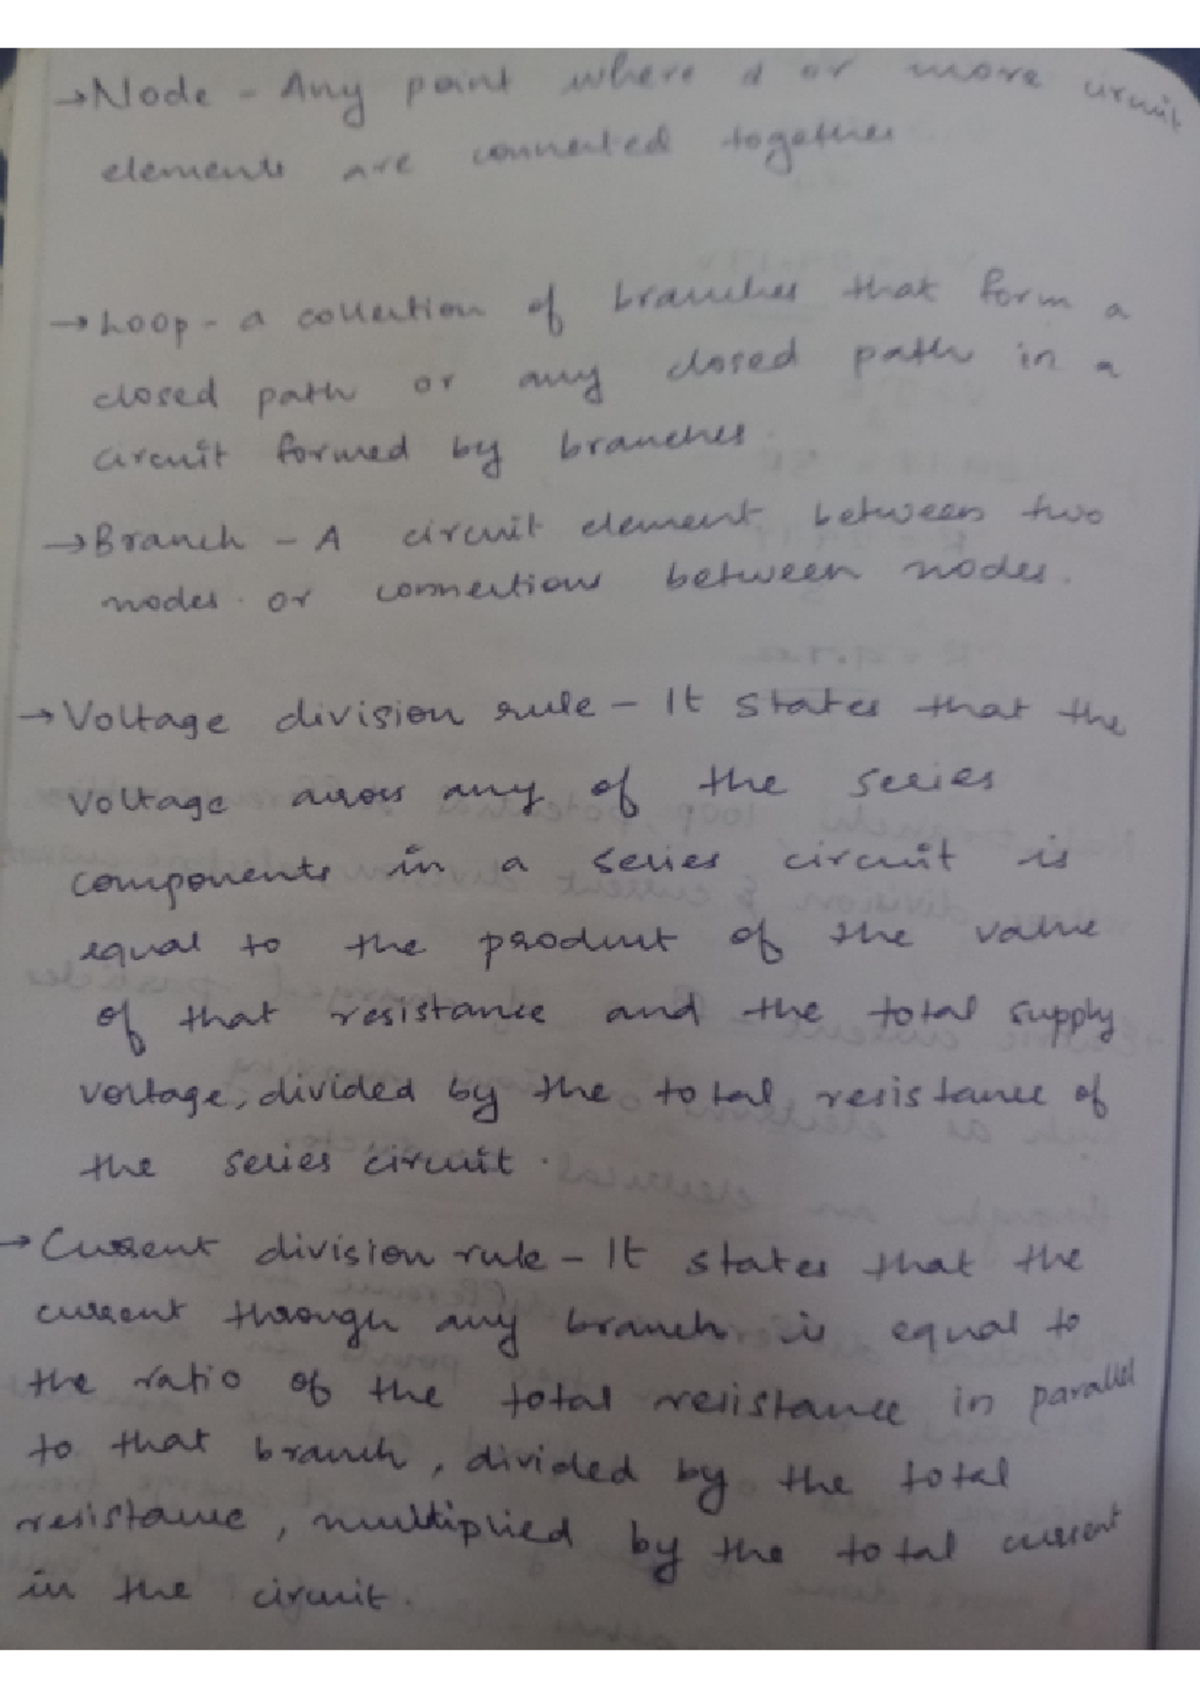 →Node - Any point where 2 or more circuit
elements are connected together
→Loop - a collection of branches that form a
closed path or any closed path in a
circuit formed by branches.
→Branch - A circuit element between two
nodes. or connections between nodes.
→Voltage division rule - It states that the
voltage across any of the series
components in a series circuit is
equal to the product of the value
of that resistance and the total supply
voltage, divided by the total resistance of
the series circuit.
→Current division rule - It states that the
current through any branch is equal to
the ratio of the total resistance in parallel
to that branch, divided by the total
resistance, multiplied by the total current
in the circuit.